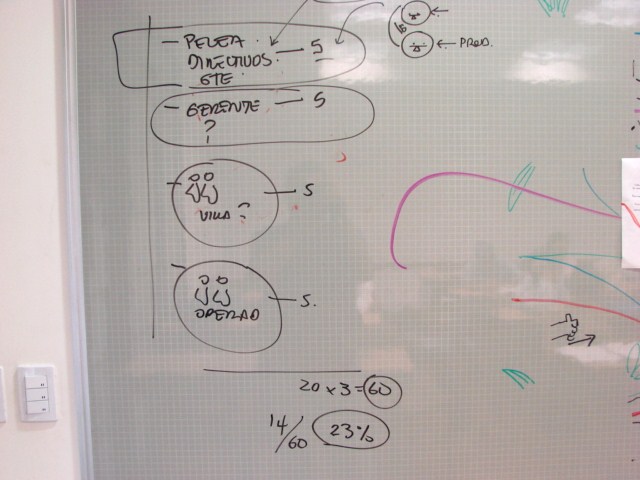 — PELEA — 5
DIRECTIVOS.
GTE.
← PROD.
— GERENTE — 5
?
— 5
VILLA?
— 5.
OPERAD
20 x 3 = 60
14/60 23%